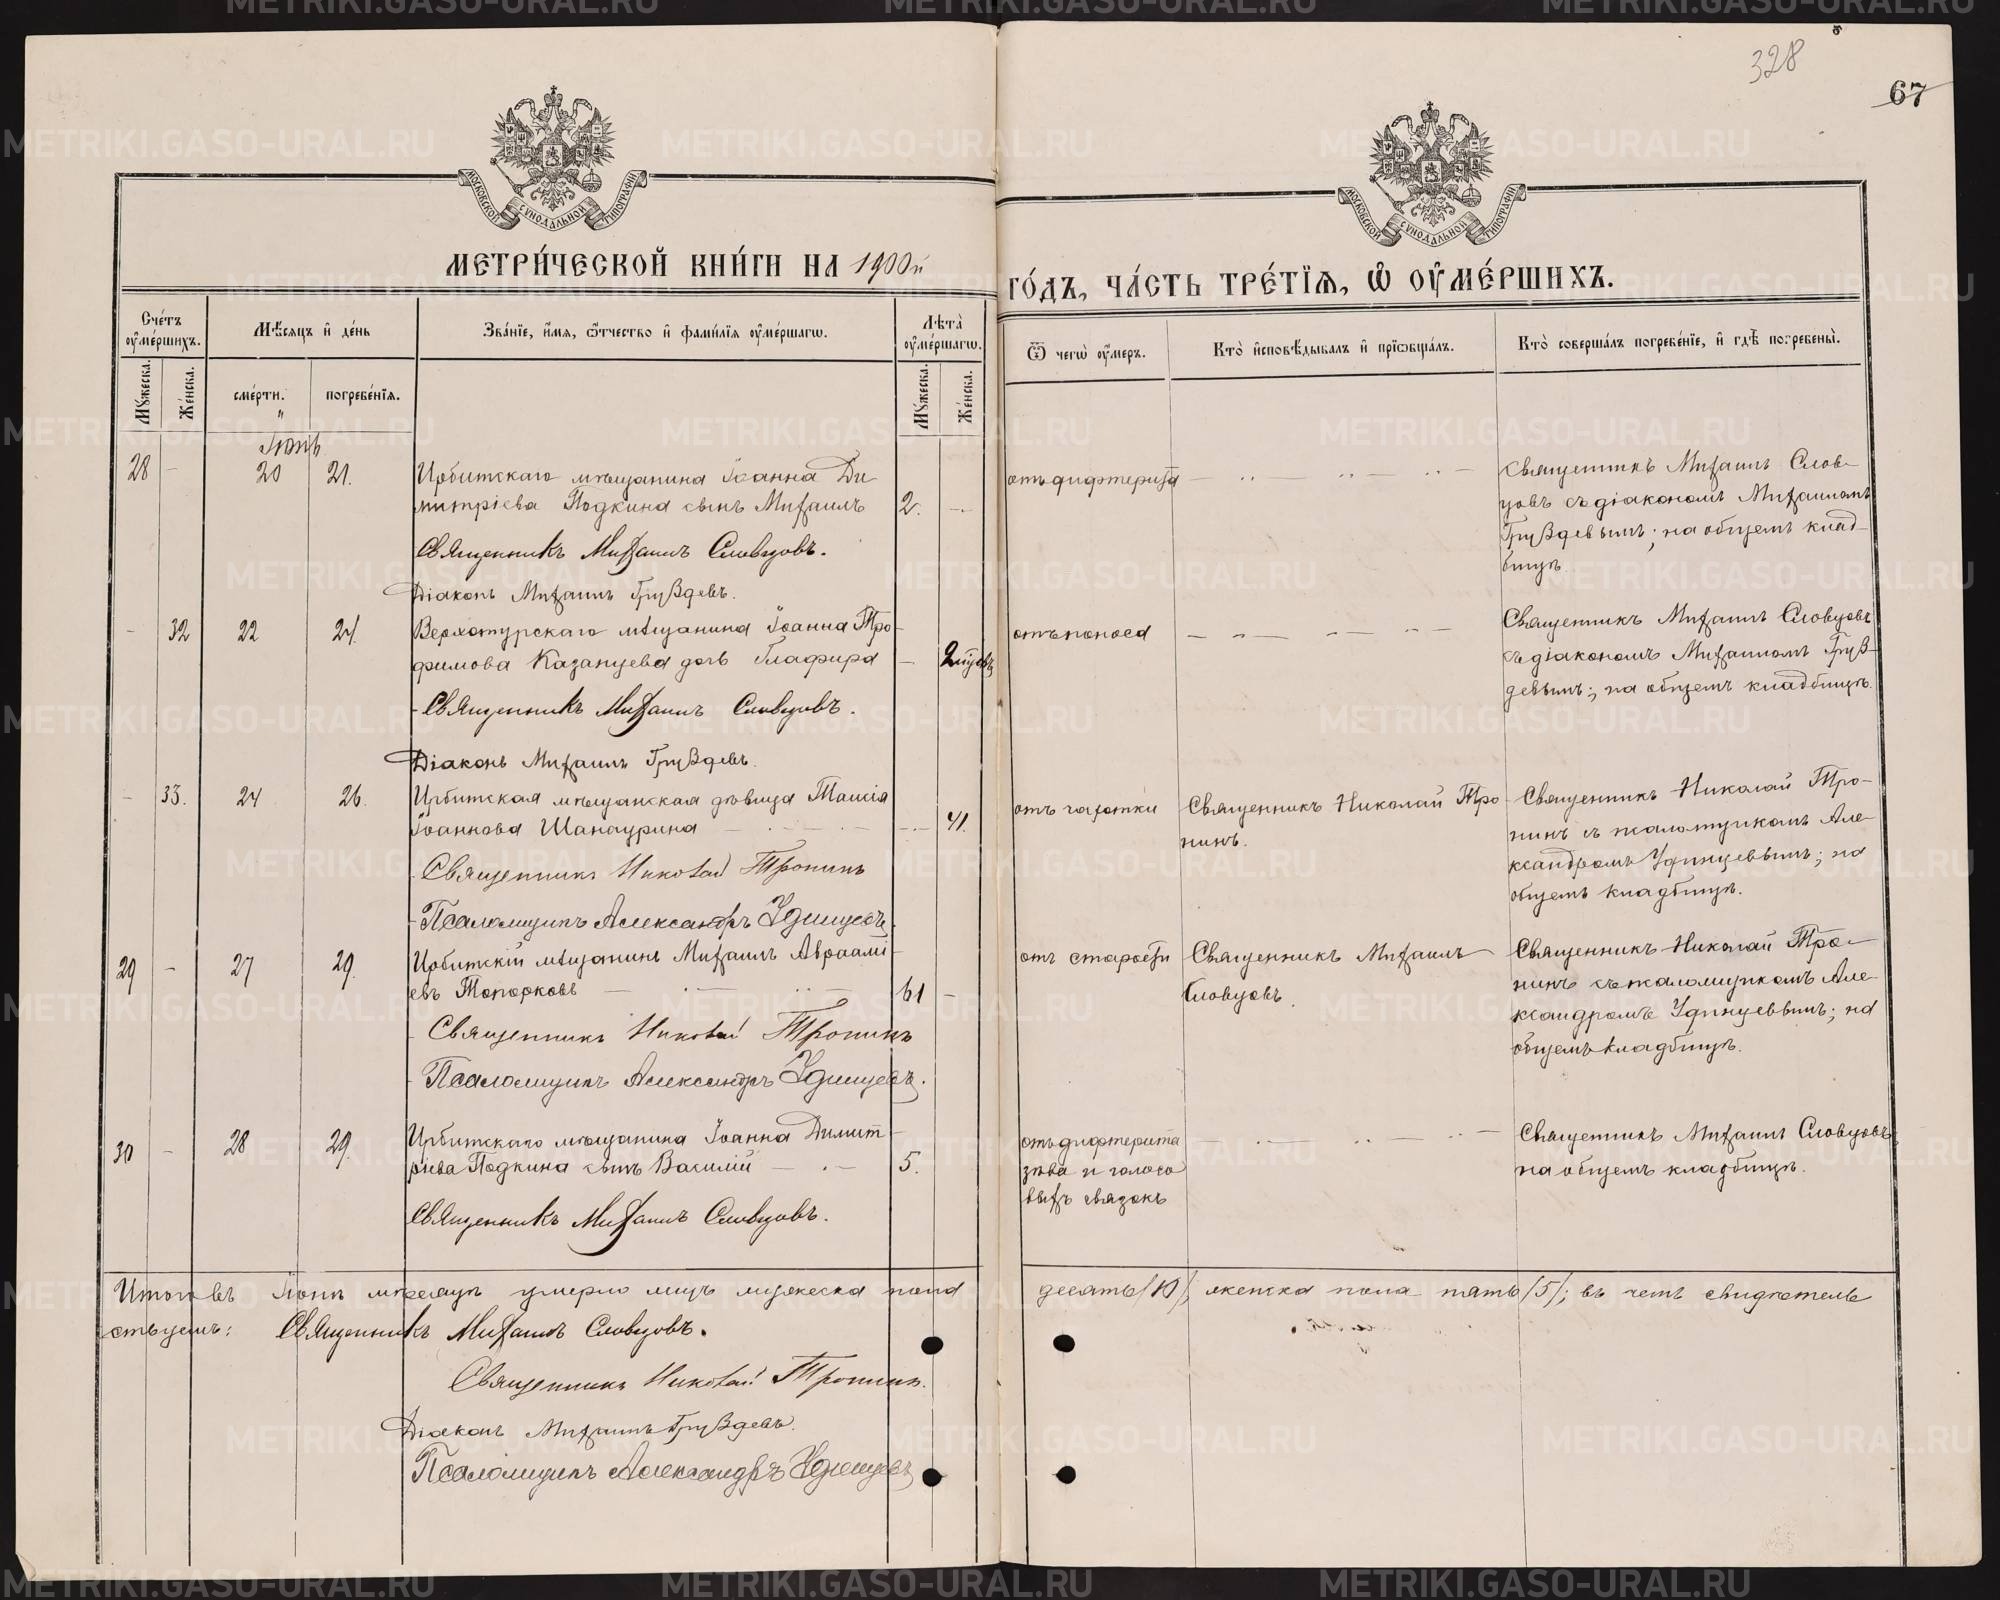 328
67
МОСКОВСКОЙ СУНОДАЛЬНОЙ ТИПОГРАФІИ
МОСКОВСКОЙ СУНОДАЛЬНОЙ ТИПОГРАФІИ
МЕТРИ́ЧЕСКОЙ КНИ́ГИ НА 1900й
ГО́ДЪ, ЧА́СТЬ ТРЕ́ТІѦ, Ѽ ОУ҆МЕ́РШИХЪ.
Сче́тъ оу҆ме́ршихъ.
Мѣ́сяцъ и҆ де́нь
Зва́ніе, и҆́мя, ѻ҆́тчество и҆ фами́лїя оу҆ме́ршагѡ.
Лѣта̀ оу҆ме́ршагѡ.
Ѿ чегѡ̀ оу҆́меръ.
Кто̀ и҆сповѣ́дывалъ и҆ прїѡбща́лъ.
Кто̀ соверша́лъ погребе́нїе, и҆ гдѣ̀ погребены̀.
Мꙋ́жеска. Же́нска. сме́рти. погребе́нїя. Мꙋ́жеска. Же́нска.
Іюнь
28 – 20 21. Ирбитскаго мѣщанина Іоанна Ди
митріева Подкина сынъ Михаилъ 2. –
Священникъ Михаилъ Словцовъ.
Діаконъ Михаилъ Груздевъ.
отъ дифтерита
Священникъ Михаилъ Слов-
цовъ съ діакономъ Михаиломъ
Груздевымъ; на общемъ клад-
бищѣ.
– 32 22 24. Верхотурскаго мѣщанина Іоанна Тро-
фимова Казанцева дочь Глафира – 2 мѣсяцовъ
Священникъ Михаилъ Словцовъ.
Діаконъ Михаилъ Груздевъ.
отъ поноса
Священникъ Михаилъ Словцовъ
съ діакономъ Михаиломъ Груз-
девымъ; на общемъ кладбищѣ.
– 33. 24 26. Ирбитская мѣщанская дѣвица Таисія
Іоаннова Шанаурина – 41.
Священникъ Николай Тронинъ
Псаломщикъ Александръ Удинцевъ.
отъ чахотки
Священникъ Николай Тро
нинъ.
Священникъ Николай Тро-
нинъ съ псаломщикомъ Але-
ксандромъ Удинцевымъ; на
общемъ кладбищѣ.
29 – 27 29. Ирбитскій мѣщанинъ Михаилъ Авраамі-
евъ Топорковъ 61 –
Священникъ Николай Тронинъ
Псаломщикъ Александръ Удинцевъ.
отъ старости
Священникъ Михаилъ
Словцовъ.
Священникъ Николай Тро-
нинъ съ псаломщикомъ Але-
ксандромъ Удинцевымъ; на
общемъ кладбищѣ.
30 – 28 29. Ирбитскаго мѣщанина Іоанна Димит-
ріева Подкина сынъ Василій 5.
Священникъ Михаилъ Словцовъ.
отъ дифтерита
зѣва и голосо
выхъ связокъ
Священникъ Михаилъ Словцовъ;
на общемъ кладбищѣ.
Итого въ Іюнѣ мѣсяцѣ умерло лицъ мужеска пола десять /10/, женска пола пять /5/; въ чемъ свидѣтель
ствуемъ: Священникъ Михаилъ Словцовъ.
Священникъ Николай Тронинъ.
Діаконъ Михаилъ Груздевъ.
Псаломщикъ Александръ Удинцевъ
METRIKI.GASO-URAL.RU